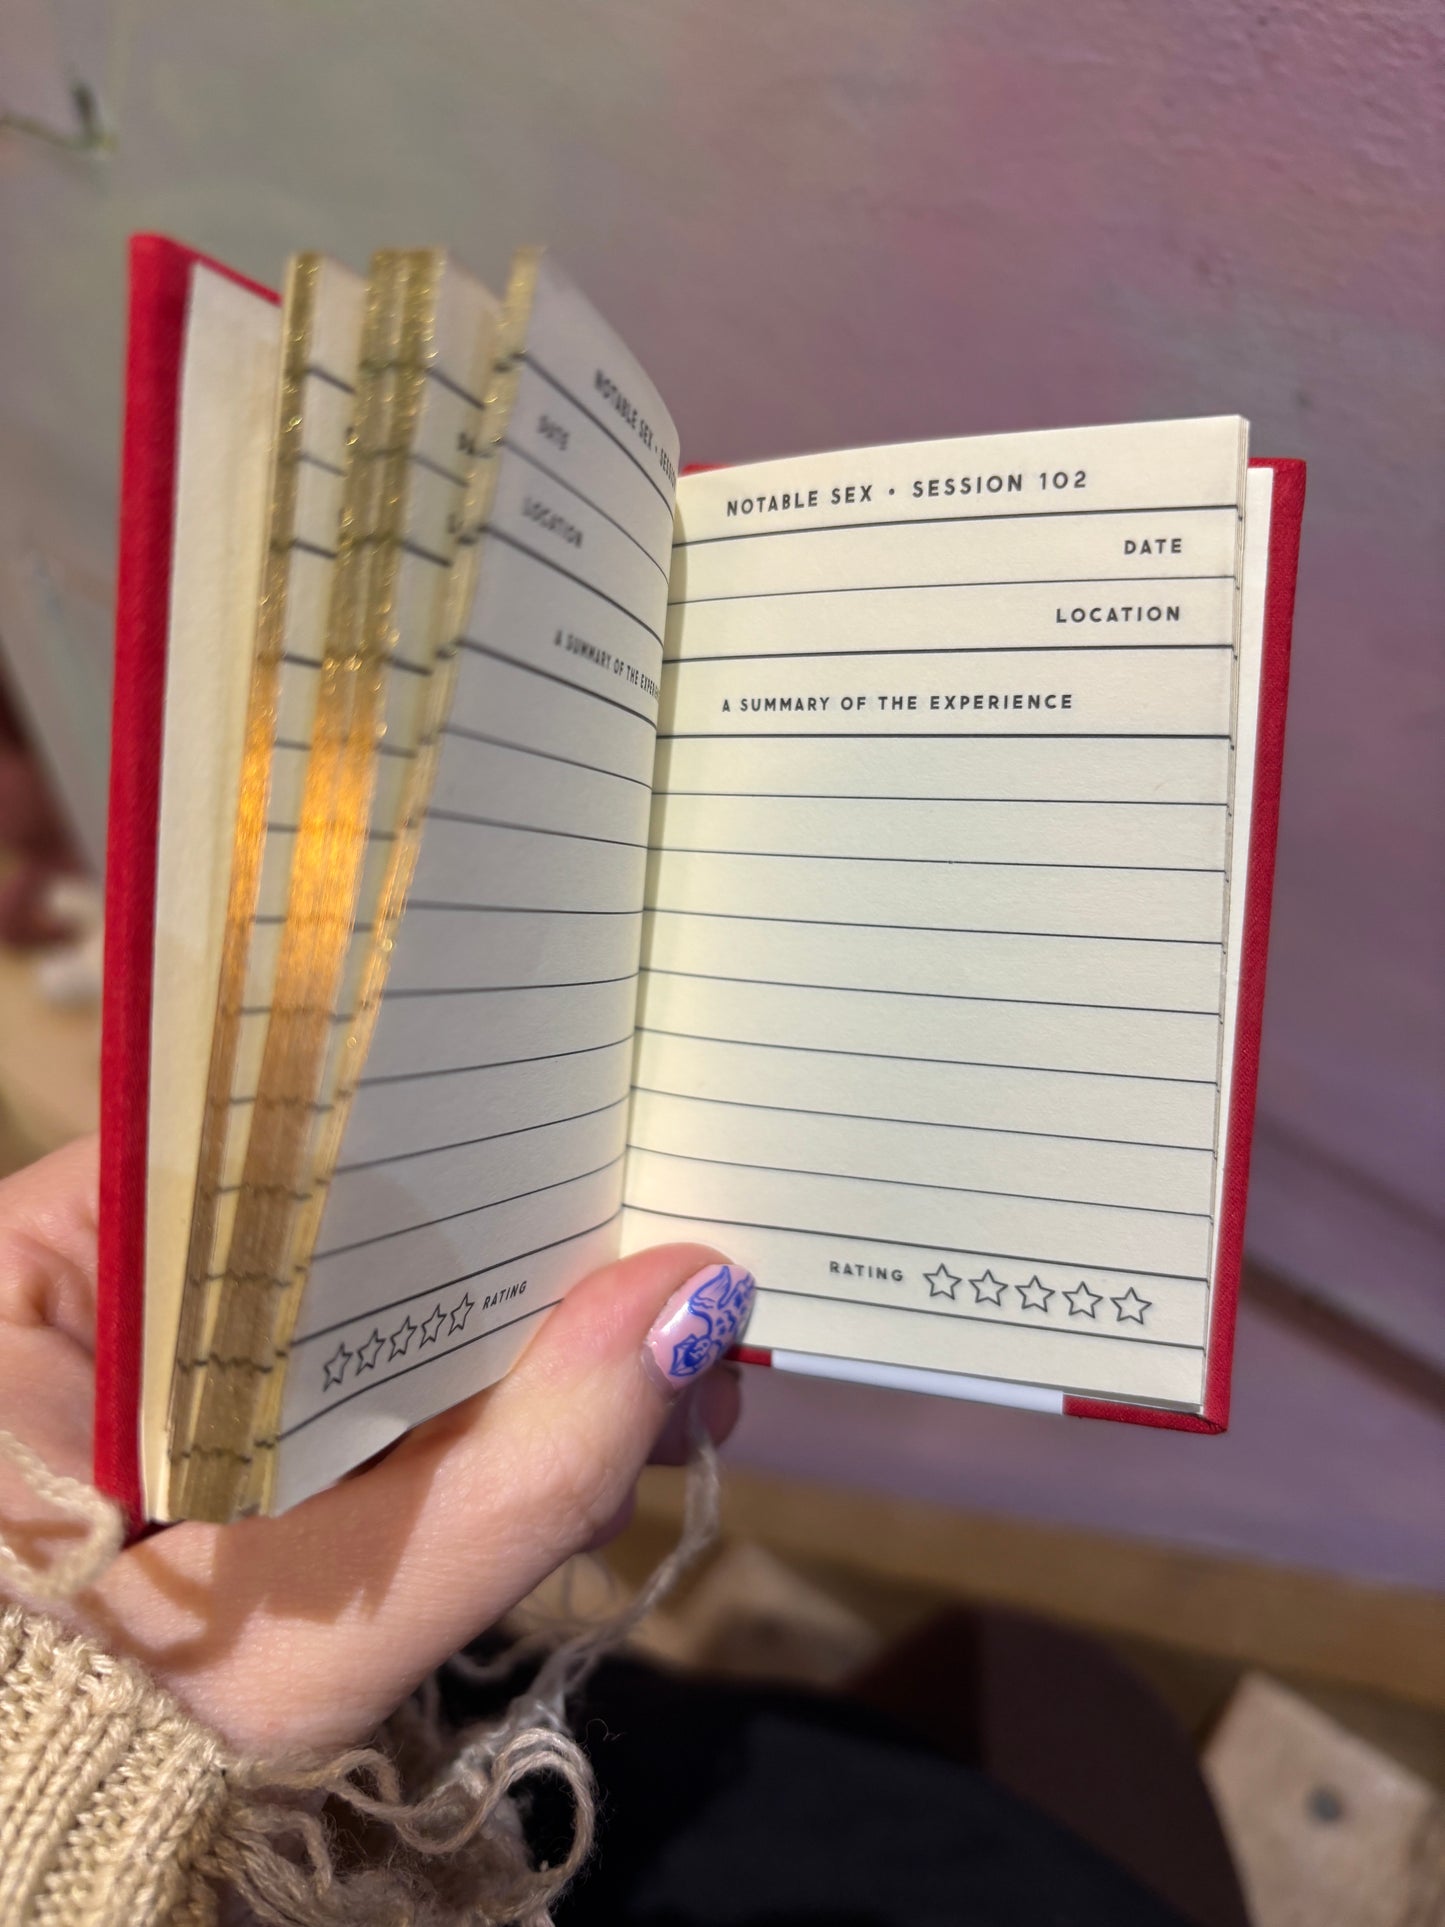 NOTABLE SEX • SESSION
DATE
LOCATION
A SUMMARY OF THE
RATING
NOTABLE SEX • SESSION 102
DATE
LOCATION
A SUMMARY OF THE EXPERIENCE
RATING